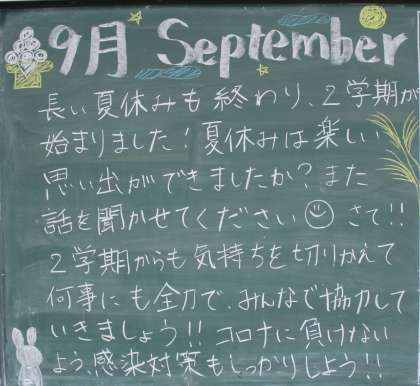 9月 September
長い夏休みも終わり、2学期が
始まりました!夏休みは楽しい
思い出ができましたか?また
話を聞かせてください☺ さて!!
2学期からも気持ちを切りかえて
何事にも全力で、みんなで協力して
いきましょう!! コロナに負けない
よう、感染対策もしっかりしよう!!